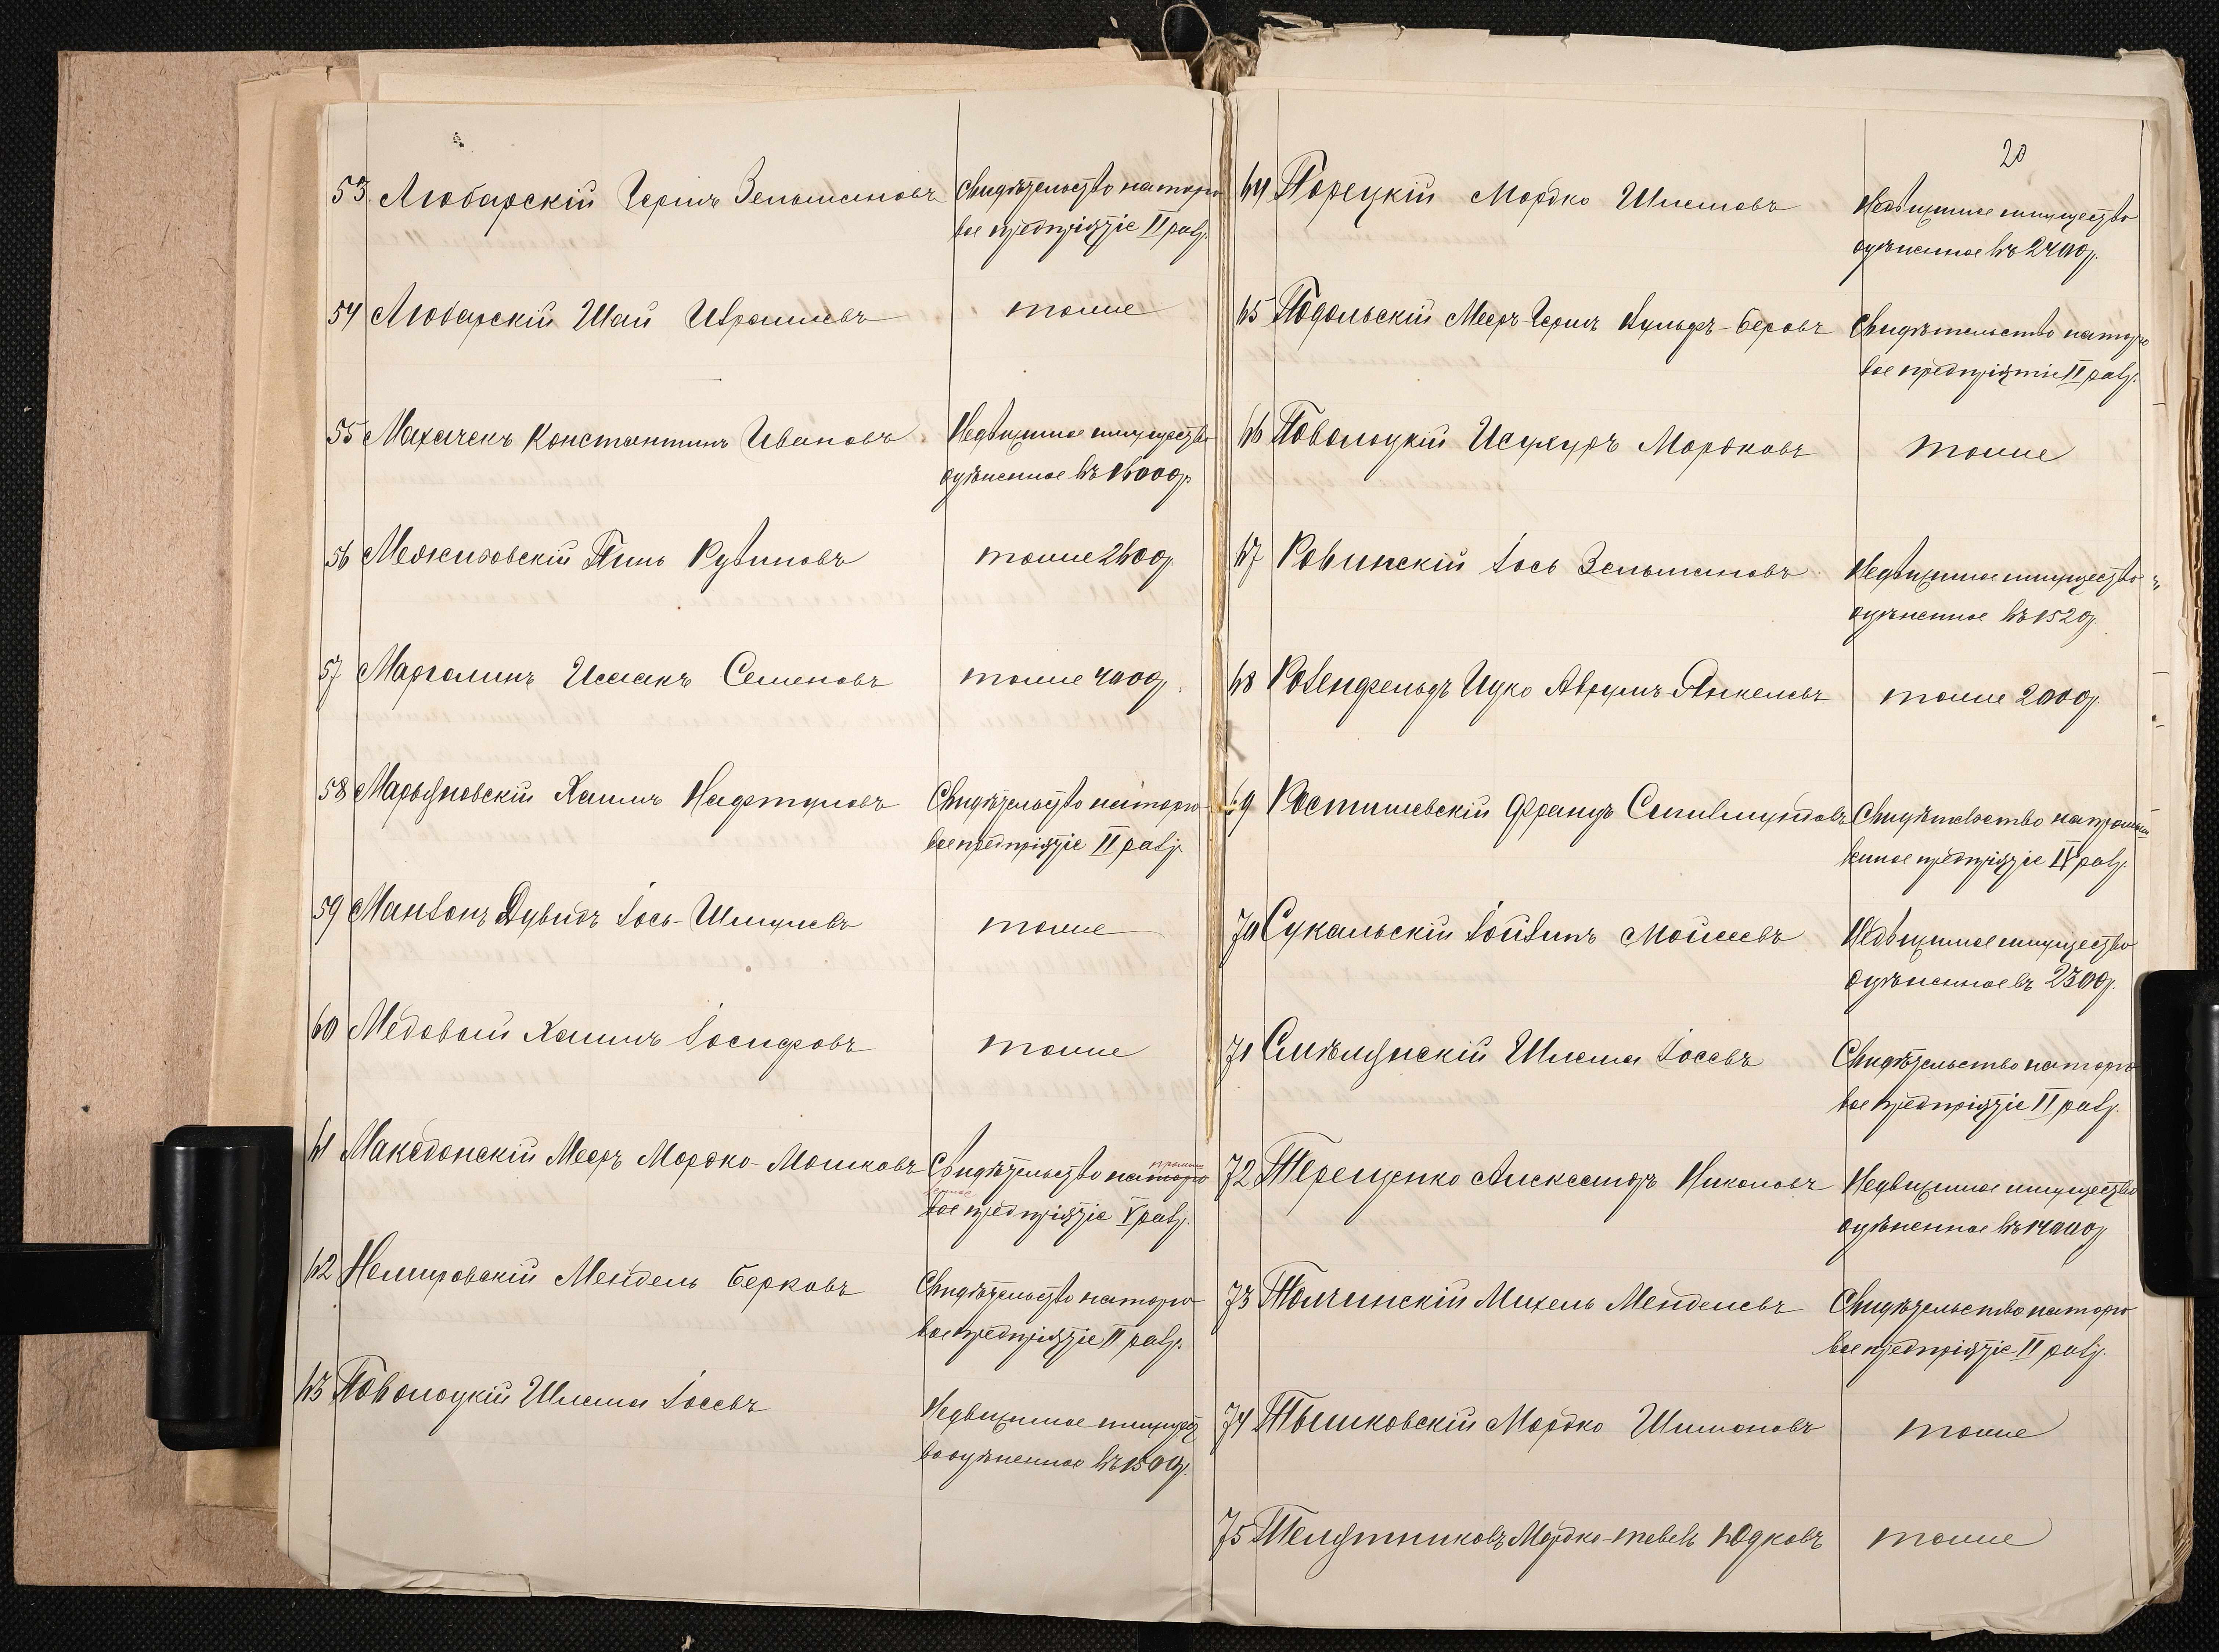 53. Любарскій Гершъ Зельмановъ Свидѣтельство на торго
вое предпріятіе II разр.
54 Любарскій Шая Абрамовъ тоже
55 Махачекъ Константинъ Ивановъ Недвижимое имущество
оцѣненное въ 16000р.
56 Межизовскій Пинь Рувиновъ тоже 2600р.
57 Марголинъ Исаакъ Семеновъ тоже 4000р.
58 Марьяновскій Хаимъ Нафтуловъ Свидѣтельство на торго
вое предпріятіе II разр.
59 Манзонъ Дувидъ Іось-Шмулевъ тоже
60 Медовой Хаимъ Іосифовъ тоже
61 Македонскій Мееръ Мордко-Мошковъ Свидѣтельство на промыш
ленное предпріятіе V разр.
62 Немировскій Мендель Берковъ Свидѣтельство на торго
вое предпріятіе II разр.
63 Поволоцкій Шлема Іосевъ Недвижимое имущест
во оцѣненное въ 1500р.
20
64 Порецкій Мордко Шлемовъ Недвижимое имущество
оцѣненное въ 2400р.
65 Подольскій Меер-Гершъ Вульфъ-Беровъ Свидѣтельство на торго
вое предпріятіе II разр.
66 Поволоцкій Исухуръ Мордковъ тоже
67 Ровинскій Іось Зельмановъ Недвижимое имущество
оцѣненное въ 1520р.
68 Розенфельдъ Ицко Аврумъ-Янкелевъ тоже 2000р.
69 Ростишевскій Францъ Сигизмундовъ Свидѣтельство на промыш
ленное предпріятіе IV разр.
70 Сукальскій Іойзипъ Моисеевъ Недвижимое имущество
оцѣненное въ 2300р.
71 Смѣлянскій Шлема Іосевъ Свидѣтельство на торго
вое предпріятіе II разр.
72 Терещенко Александръ Николовъ Недвижимое имущество
оцѣненное въ 14000р
73 Толчинскій Михель Менделевъ Свидѣтельство на торго
вое предпріятіе II разр.
74 Тышковскій Мордко Шимоновъ тоже
75 Телятниковъ Мордко-Тевель Юдковъ тоже